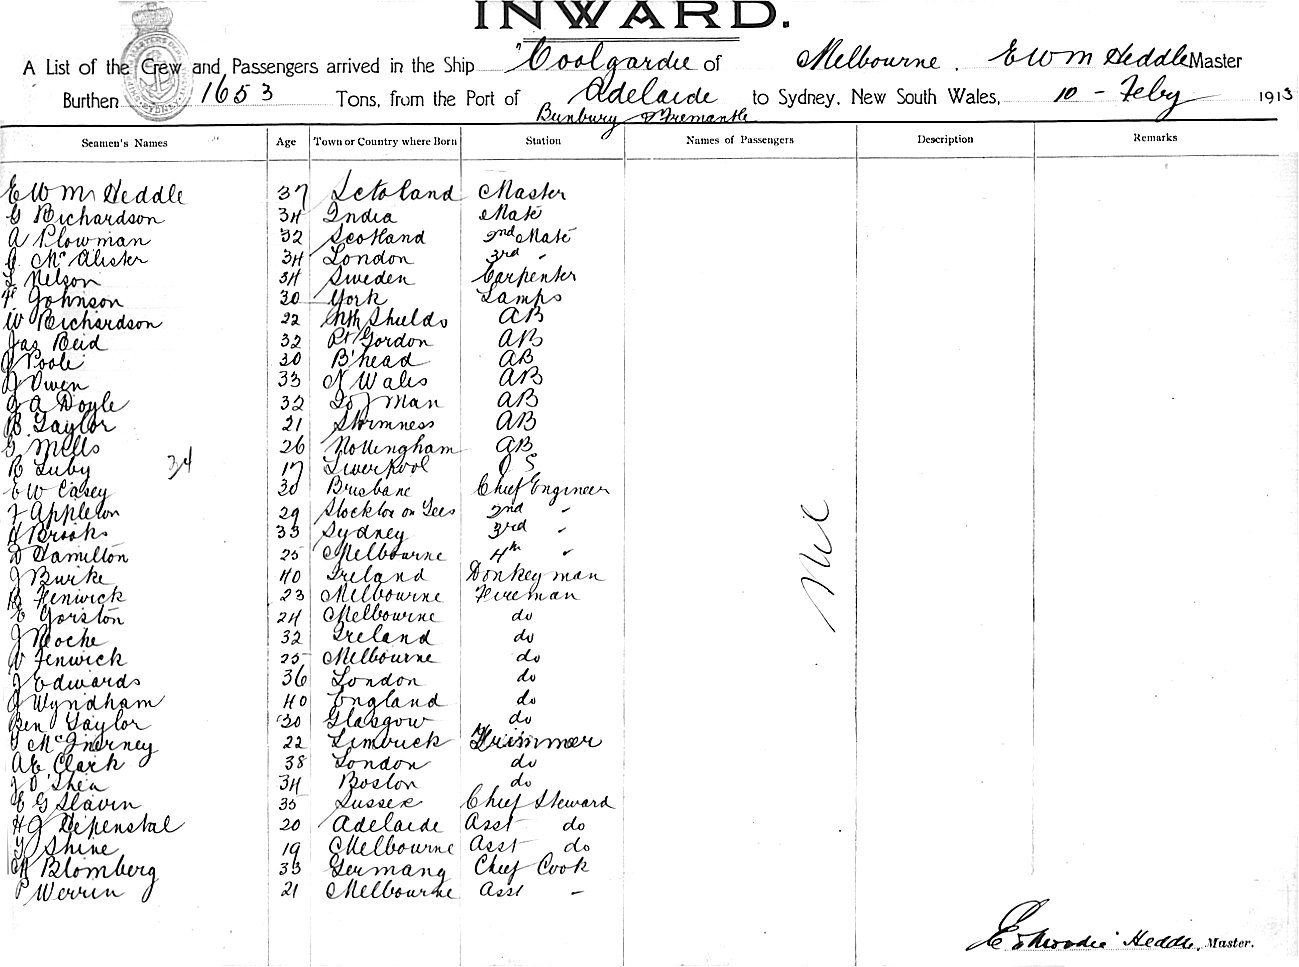 INWARD.
A List of the Crew and Passengers arrived in the Ship "Coolgardie of Melbourne. E W M Heddle Master
Burthen 1653 Tons, from the Port of Adelaide to Sydney, New South Wales, 10 - Feby 1913
Bunbury & Fremantle
Seamen's Names Age Town or Country where Born Station Names of Passengers Description Remarks
E W M Heddle 37 Scotland Master
G Richardson 34 India Mate
A Plowman 32 Scotland 2nd Mate
Mc Alister 34 London 3rd "
Nelson 34 Sweden Carpenter
Johnson 30 York Lamps
W Richardson 22 Nth Shields AB
Jas Reid 32 Pt Gordon AB
Poole 30 B'head AB
J Owen 33 N Wales AB
J A Doyle 32 I of Man AB
R Taylor 21 Stromness AB
G Mells 26 Nottingham AB
R Luby 34 17 Liverpool O S
E W Casey 30 Brisbane Chief Engineer
J Appleton 29 Stockton on Tees 2nd "
H Brooks 33 Sydney 3rd "
D Hamilton 25 Melbourne 4th "
J Burke 40 Ireland Donkeyman
R Fenwick 23 Melbourne Fireman
E Gorston 24 Melbourne do
J Roche 32 Ireland do
W Fenwick 25 Melbourne do
J Edwards 36 London do
J Wyndham 40 England do
Ben Taylor 30 Glasgow do
T McInerney 22 Limerick Trimmer
A E Clark 38 London do
J O'Shea 34 Boston do
E G Slavin 35 Sussex Chief Steward
H J Depenstal 20 Adelaide Asst do
T Shine 19 Melbourne Asst do
Blomberg 33 Germany Chief Cook
P Werrin 21 Melbourne Asst -
Nil
Heddle, Master.